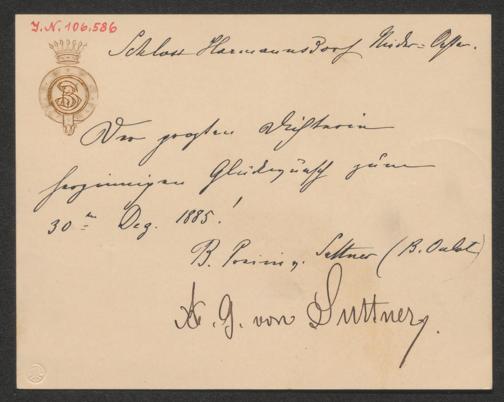 J. N. 106.586
BS
Schloss Harmannsdorf Nieder-Oester.
Der großen Dichterin
herzinnigen Glückwunsch zum
30ten Dez. 1885!
B. Baronin v. Suttner (B. Oulot)
A. G. von Suttner.